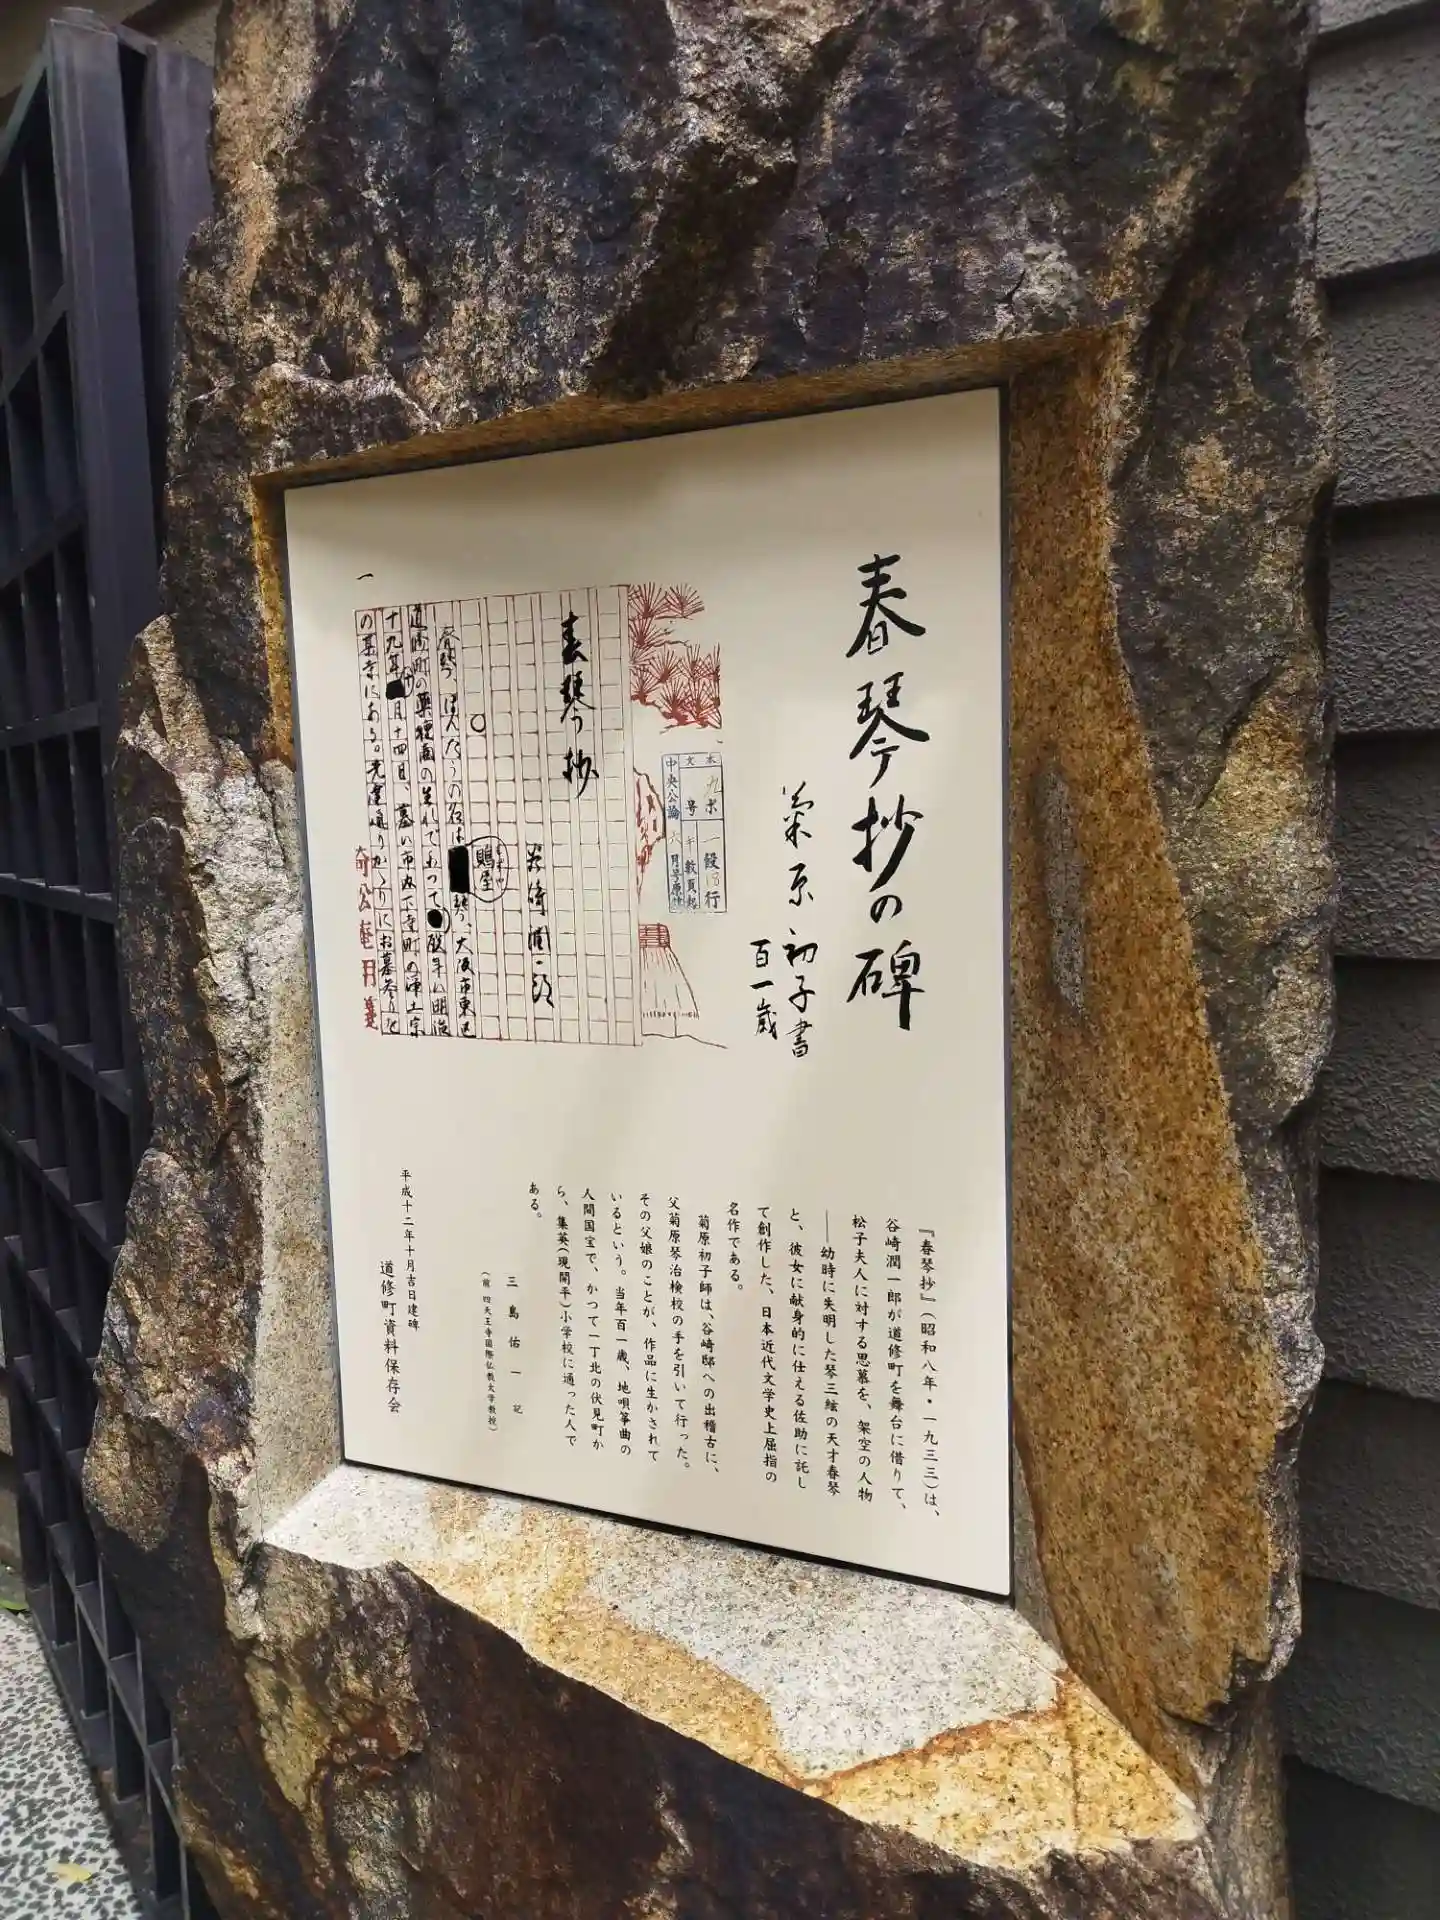 春琴抄の碑
菊原初子書
百一歳
本文 九ポ 一段 18行
中央公論 六月号原稿
春琴抄
谷崎潤一郎
春琴、ほんたうの名は鵙屋琴、大阪市東区
道修町の薬種商の生れで
十九年十月十四日、墓は市内下寺町の浄土宗
の某寺にある。先達通りかゝりにお墓参りを
一
『春琴抄』(昭和八年・一九三三)は、
谷崎潤一郎が道修町を舞台に借りて、
松子夫人に対する思慕を、架空の人物
――幼時に失明した琴三絃の天才春琴
と、彼女に献身的に仕える佐助に託し
て創作した、日本近代文学史上屈指の
名作である。
菊原初子師は、谷崎邸への出稽古に、
父菊原琴治検校の手を引いて行った。
その父娘のことが、作品に生かされて
いるという。当年百一歳、地唄箏曲の
人間国宝で、かつて一丁北の伏見町か
ら、集英(現開平)小学校に通った人で
ある。
三島佑一 記
(前 四天王寺国際仏教大学教授)
平成十二年十月吉日建碑
道修町資料保存会